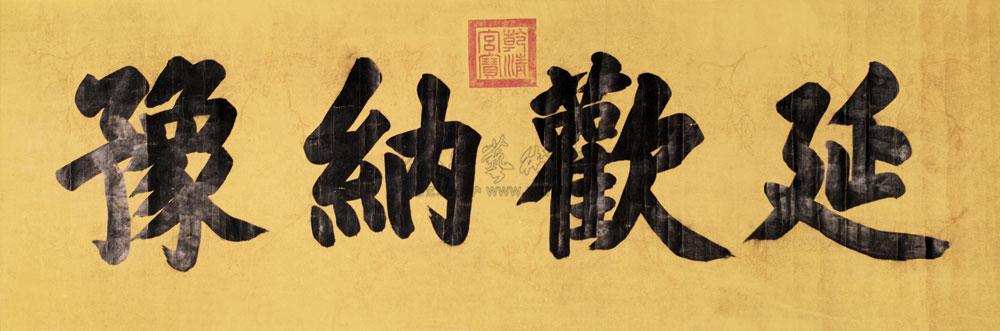 延歡納豫
乾清宮寶